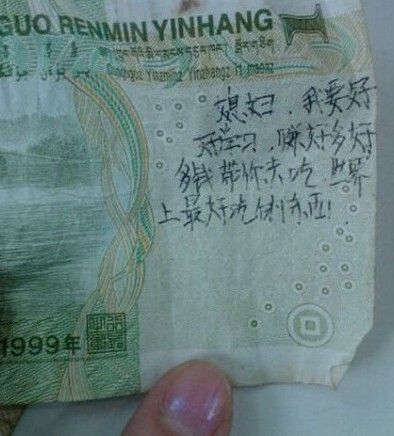 GUO RENMIN YINHANG
1
Yinzminz Yinzhangz
媳妇、我要好
好学习,赚好多好
多钱带你去吃世界
上最好吃的东西!
1999年